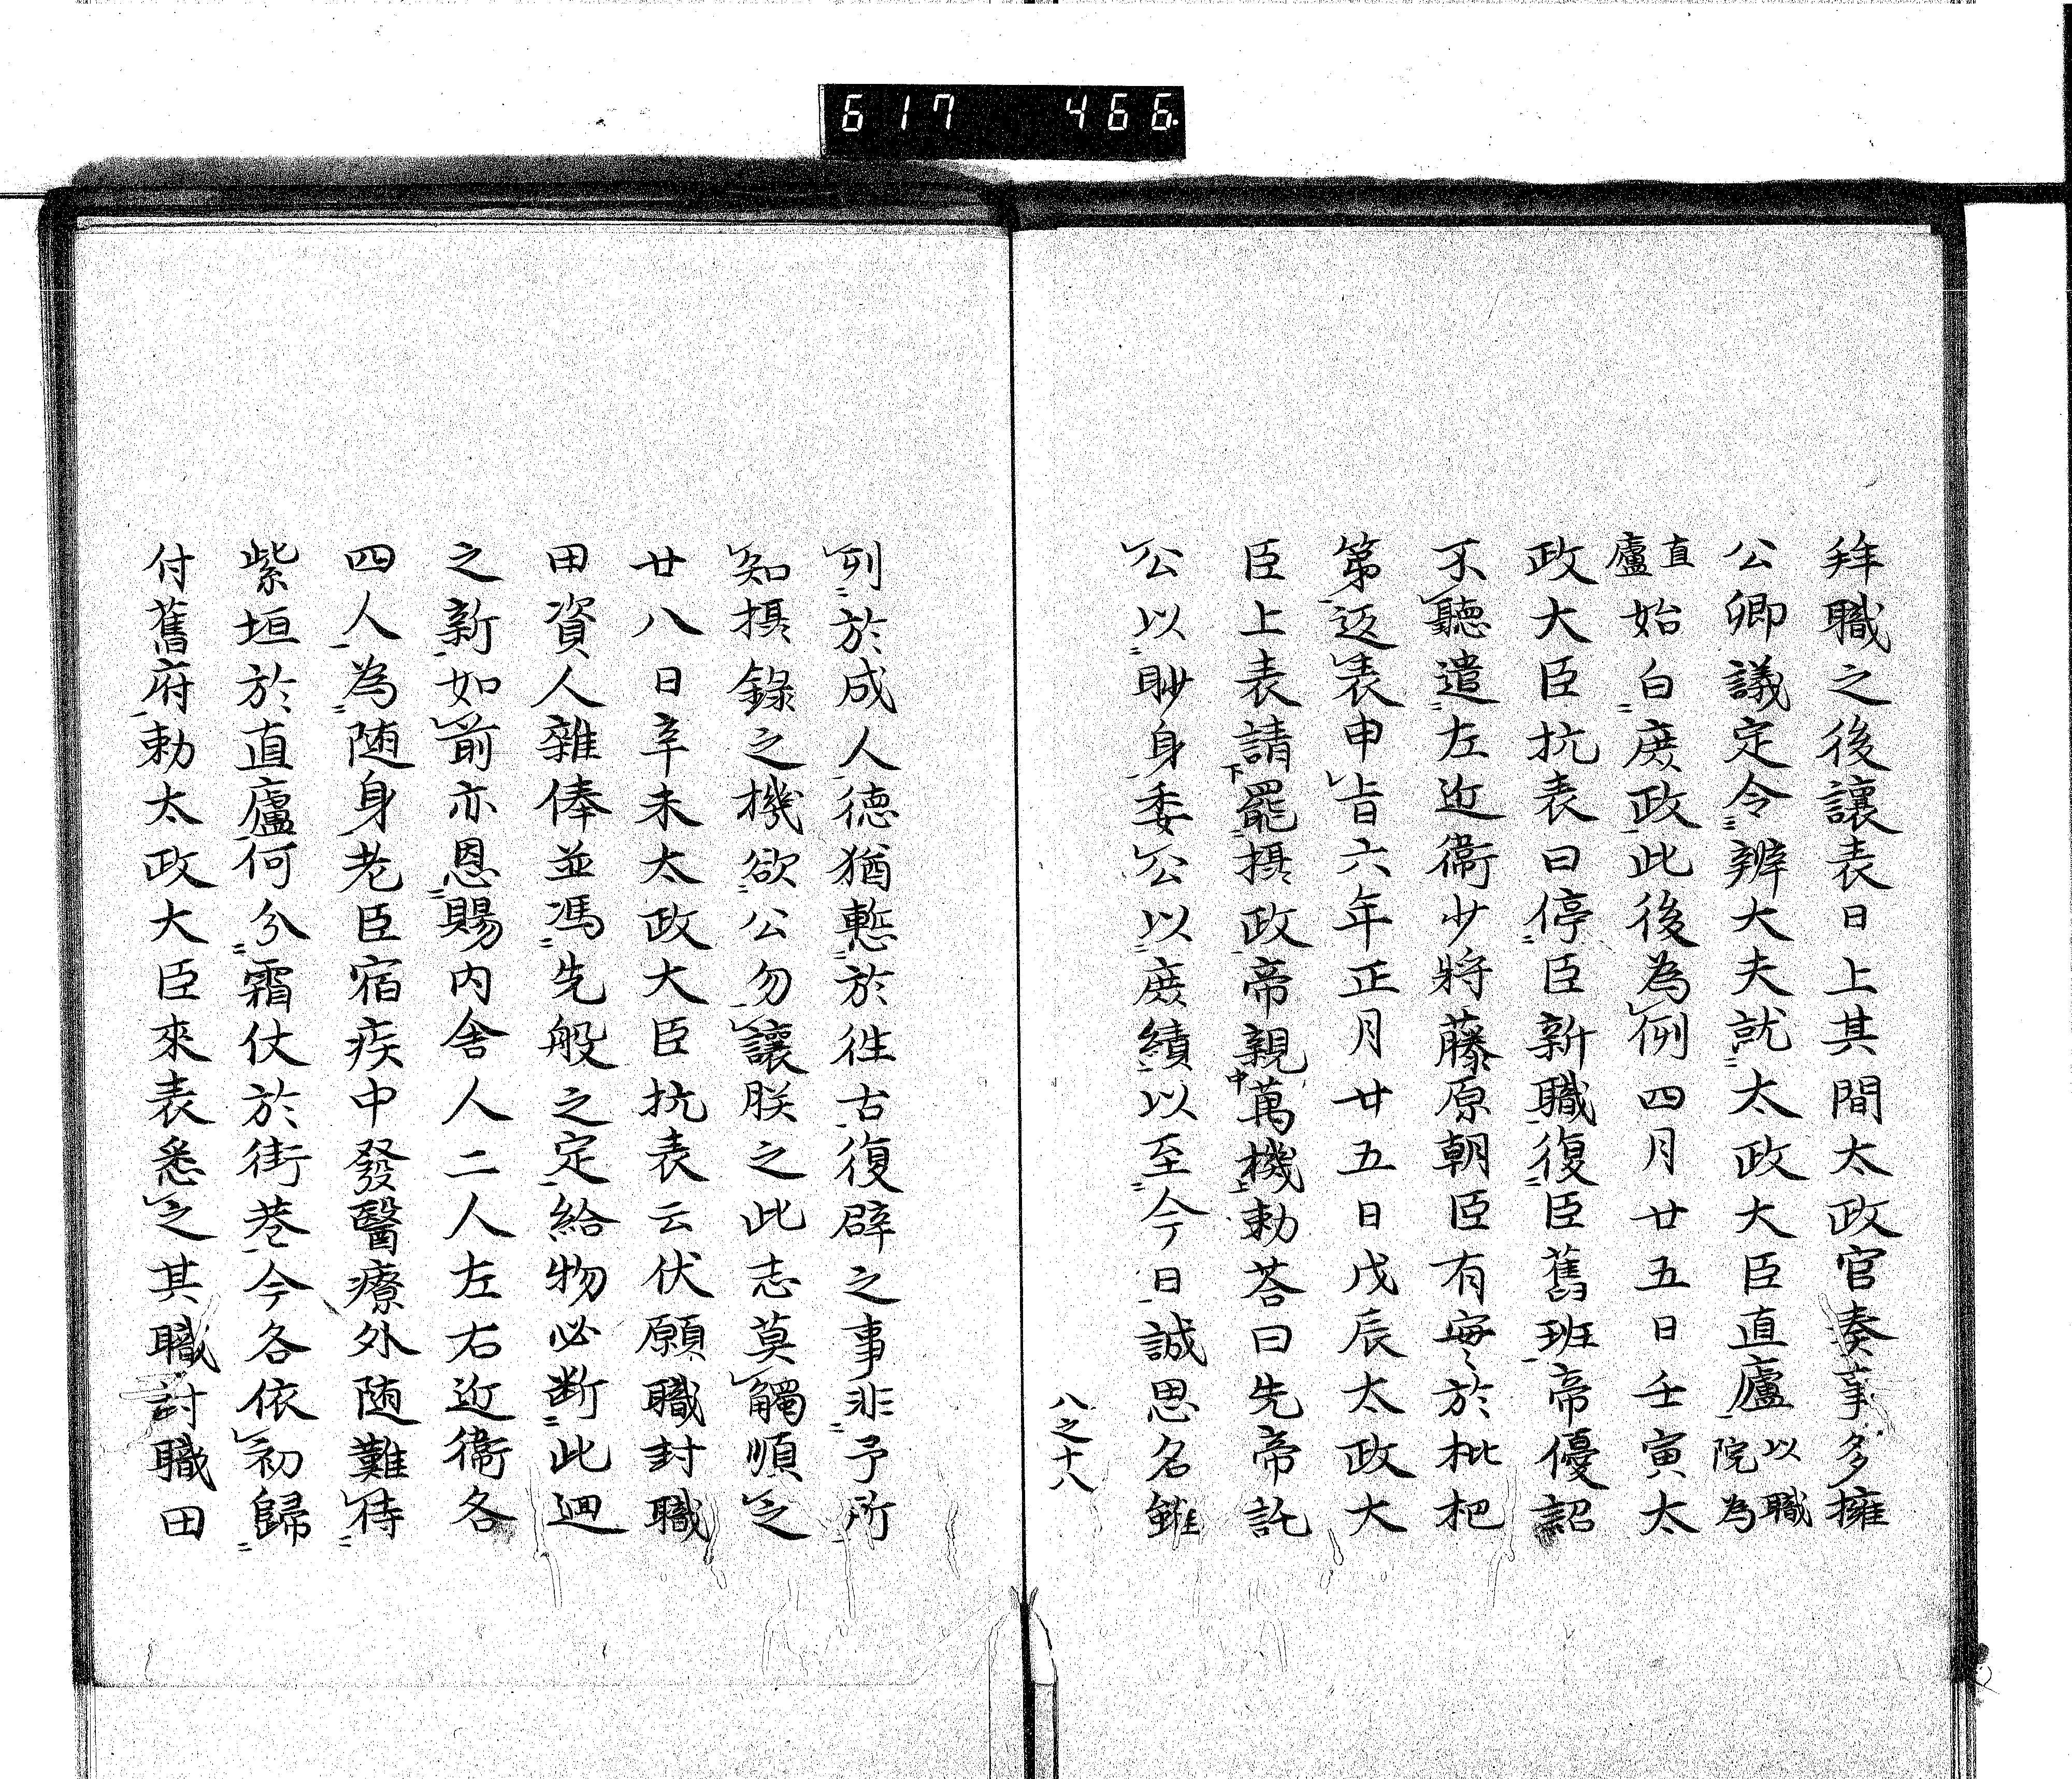 617 466
拜職之後讓表日上其間太政官奏事多擁
公卿議定令辨大夫就太政大臣直廬以職院為
直廬始白庶政此後為例四月廿五日壬寅太
政大臣抗表曰停臣新職復臣舊班帝優詔
不聽遣左近衞少將藤原朝臣有實於枇杷
第返表申旨六年正月廿五日戊辰太政大
臣上表請罷攝政帝親萬機勅荅曰先帝託
公以眇身委公以庶績以至今日誠思名雖
八之十八
列於成人德猶慙於徃古復辟之事非予所
知攝錄之機欲公勿讓朕之此志莫觸順之
廿八日辛未太政大臣抗表云伏願職封職
田資人雜俸並馮先般之定給物必断此廻
之新如前亦恩賜内舍人二人左右近衞各
四人為随身老臣宿疾中發醫療外随難待
紫垣於直廬何分霜仗於街巷今各依初歸
付舊府勅太政大臣來表悉之其職討職田